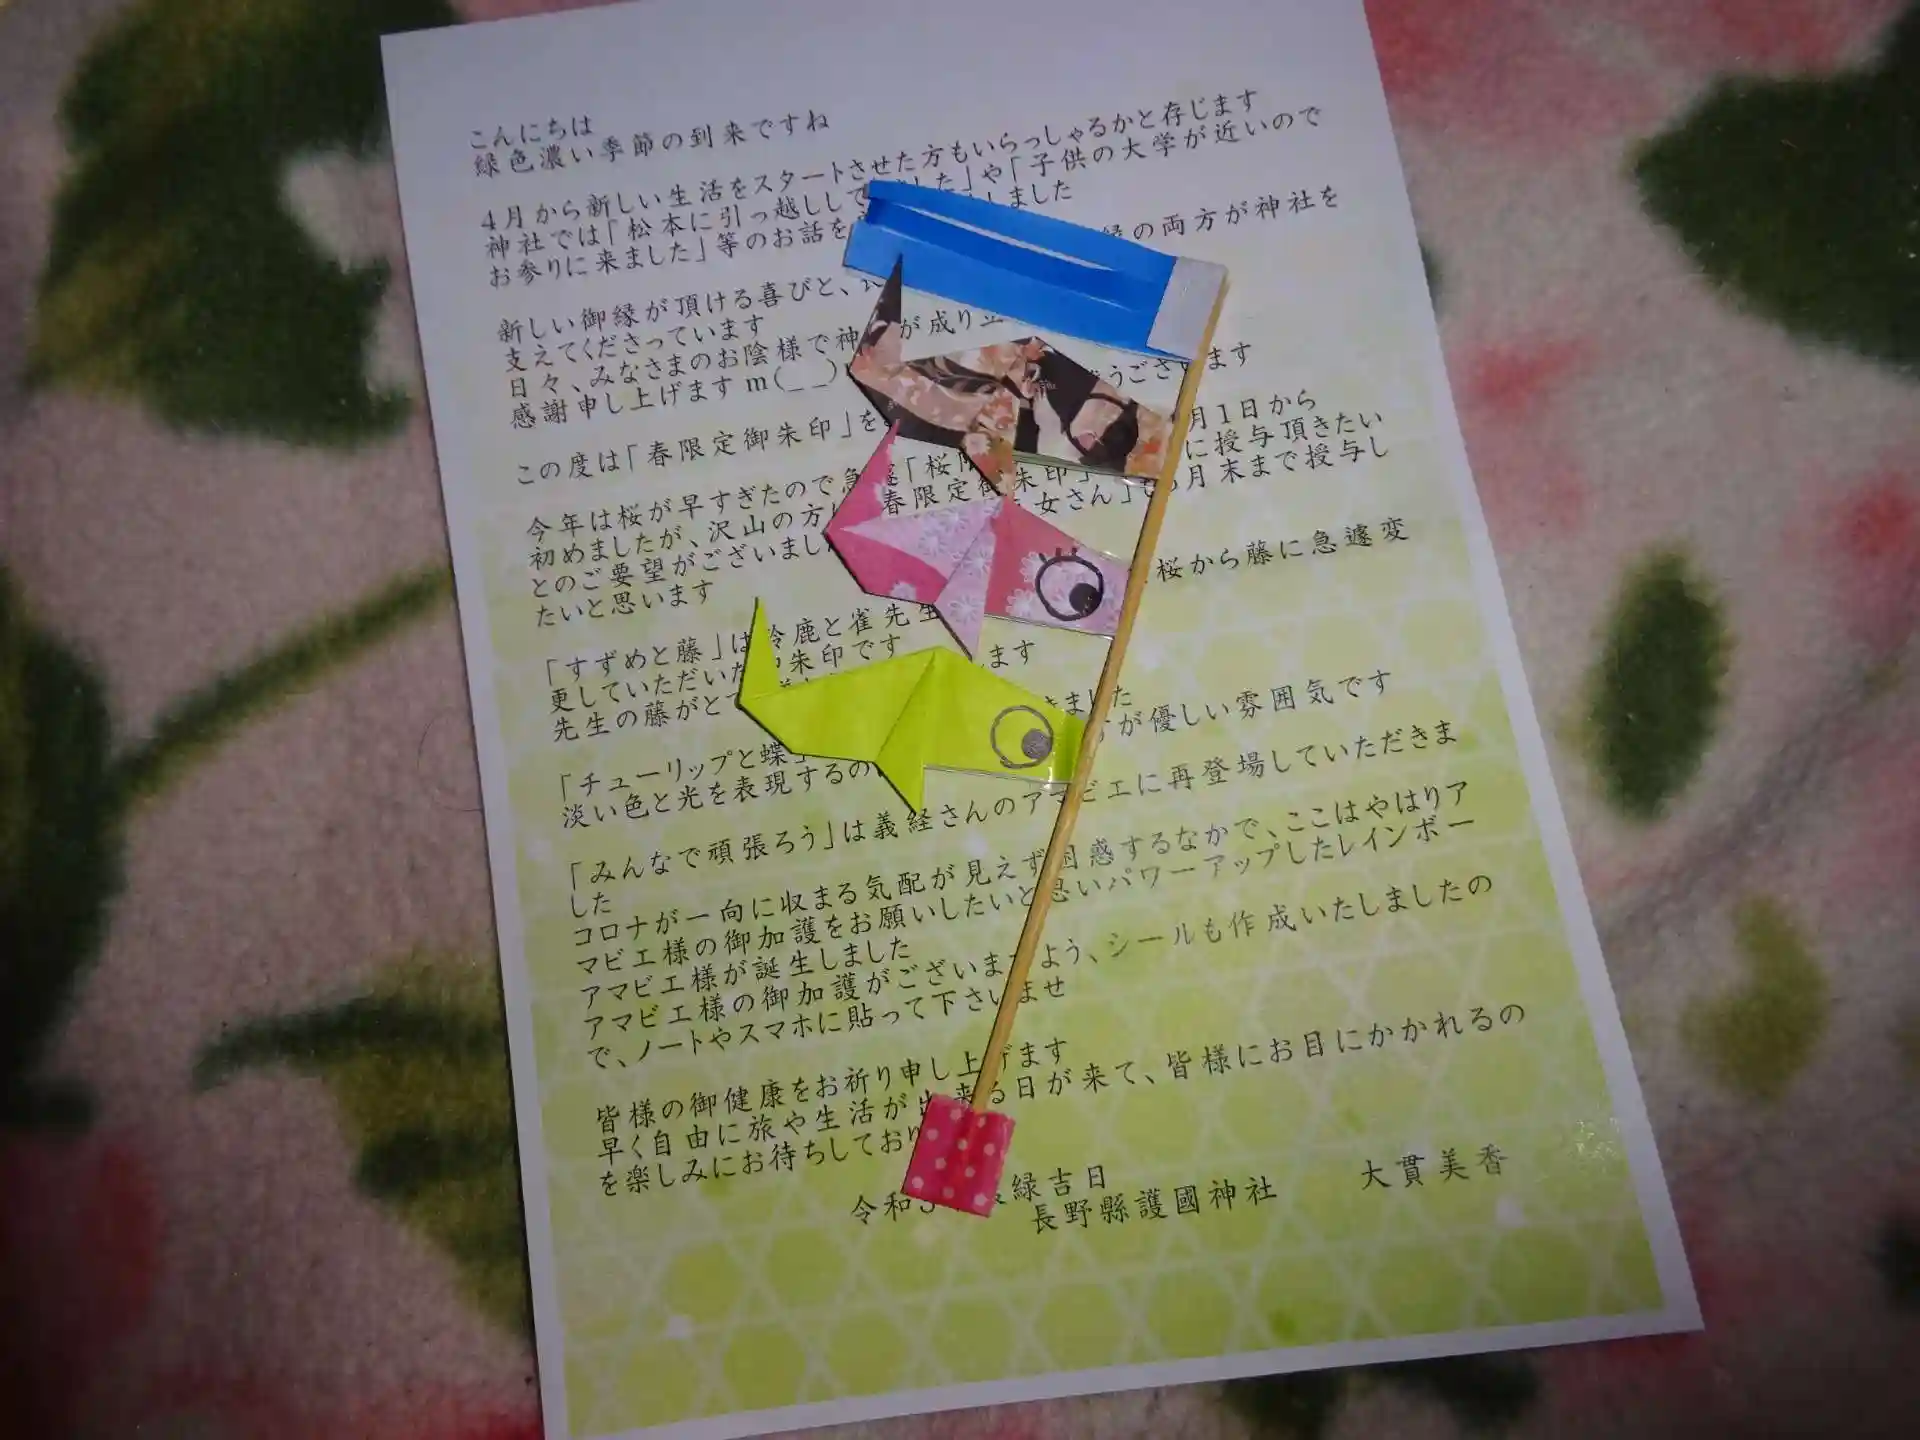 こんにちは
緑色濃い季節の到来ですね
4月から新しい生活をスタートさせた方もいらっしゃるかと存じます
神社では「松本に引っ越しして した」や「子供の大学が近いので
お参りに来ました」等のお話を しました
新しい御縁が頂ける喜びと、 の両方が神社を
支えてくださっています
日々、みなさまのお陰様で神 が成り立
感謝申し上げます m(_ _)m うございます
この度は「春限定御朱印」を 月1日から
今年は桜が早すぎたので急遽「桜限 に授与頂きたい
初めましたが、沢山の方に 春限定御朱印」 月末まで授与し
とのご要望がございまし 女さん」も
たいと思います
「すずめと藤」は鈴鹿と雀先生 桜から藤に急遽変
更していただいた 朱印です
先生の藤がとて ます
「チューリップと蝶」 きました
淡い色と光を表現するの が優しい雰囲気です
「みんなで頑張ろう」は義経さんのアマビエに再登場していただきま
した
コロナが一向に収まる気配が見えず困惑するなかで、ここはやはりア
マビエ様の御加護をお願いしたいと思いパワーアップしたレインボー
アマビエ様が誕生しました
アマビエ様の御加護がございますよう、シールも作成いたしましたの
で、ノートやスマホに貼って下さいませ
皆様の御健康をお祈り申し上げます
早く自由に旅や生活が出来る日が来て、皆様にお目にかかれるの
を楽しみにお待ちしており
令和3 緑吉日
長野縣護國神社 大貫美香